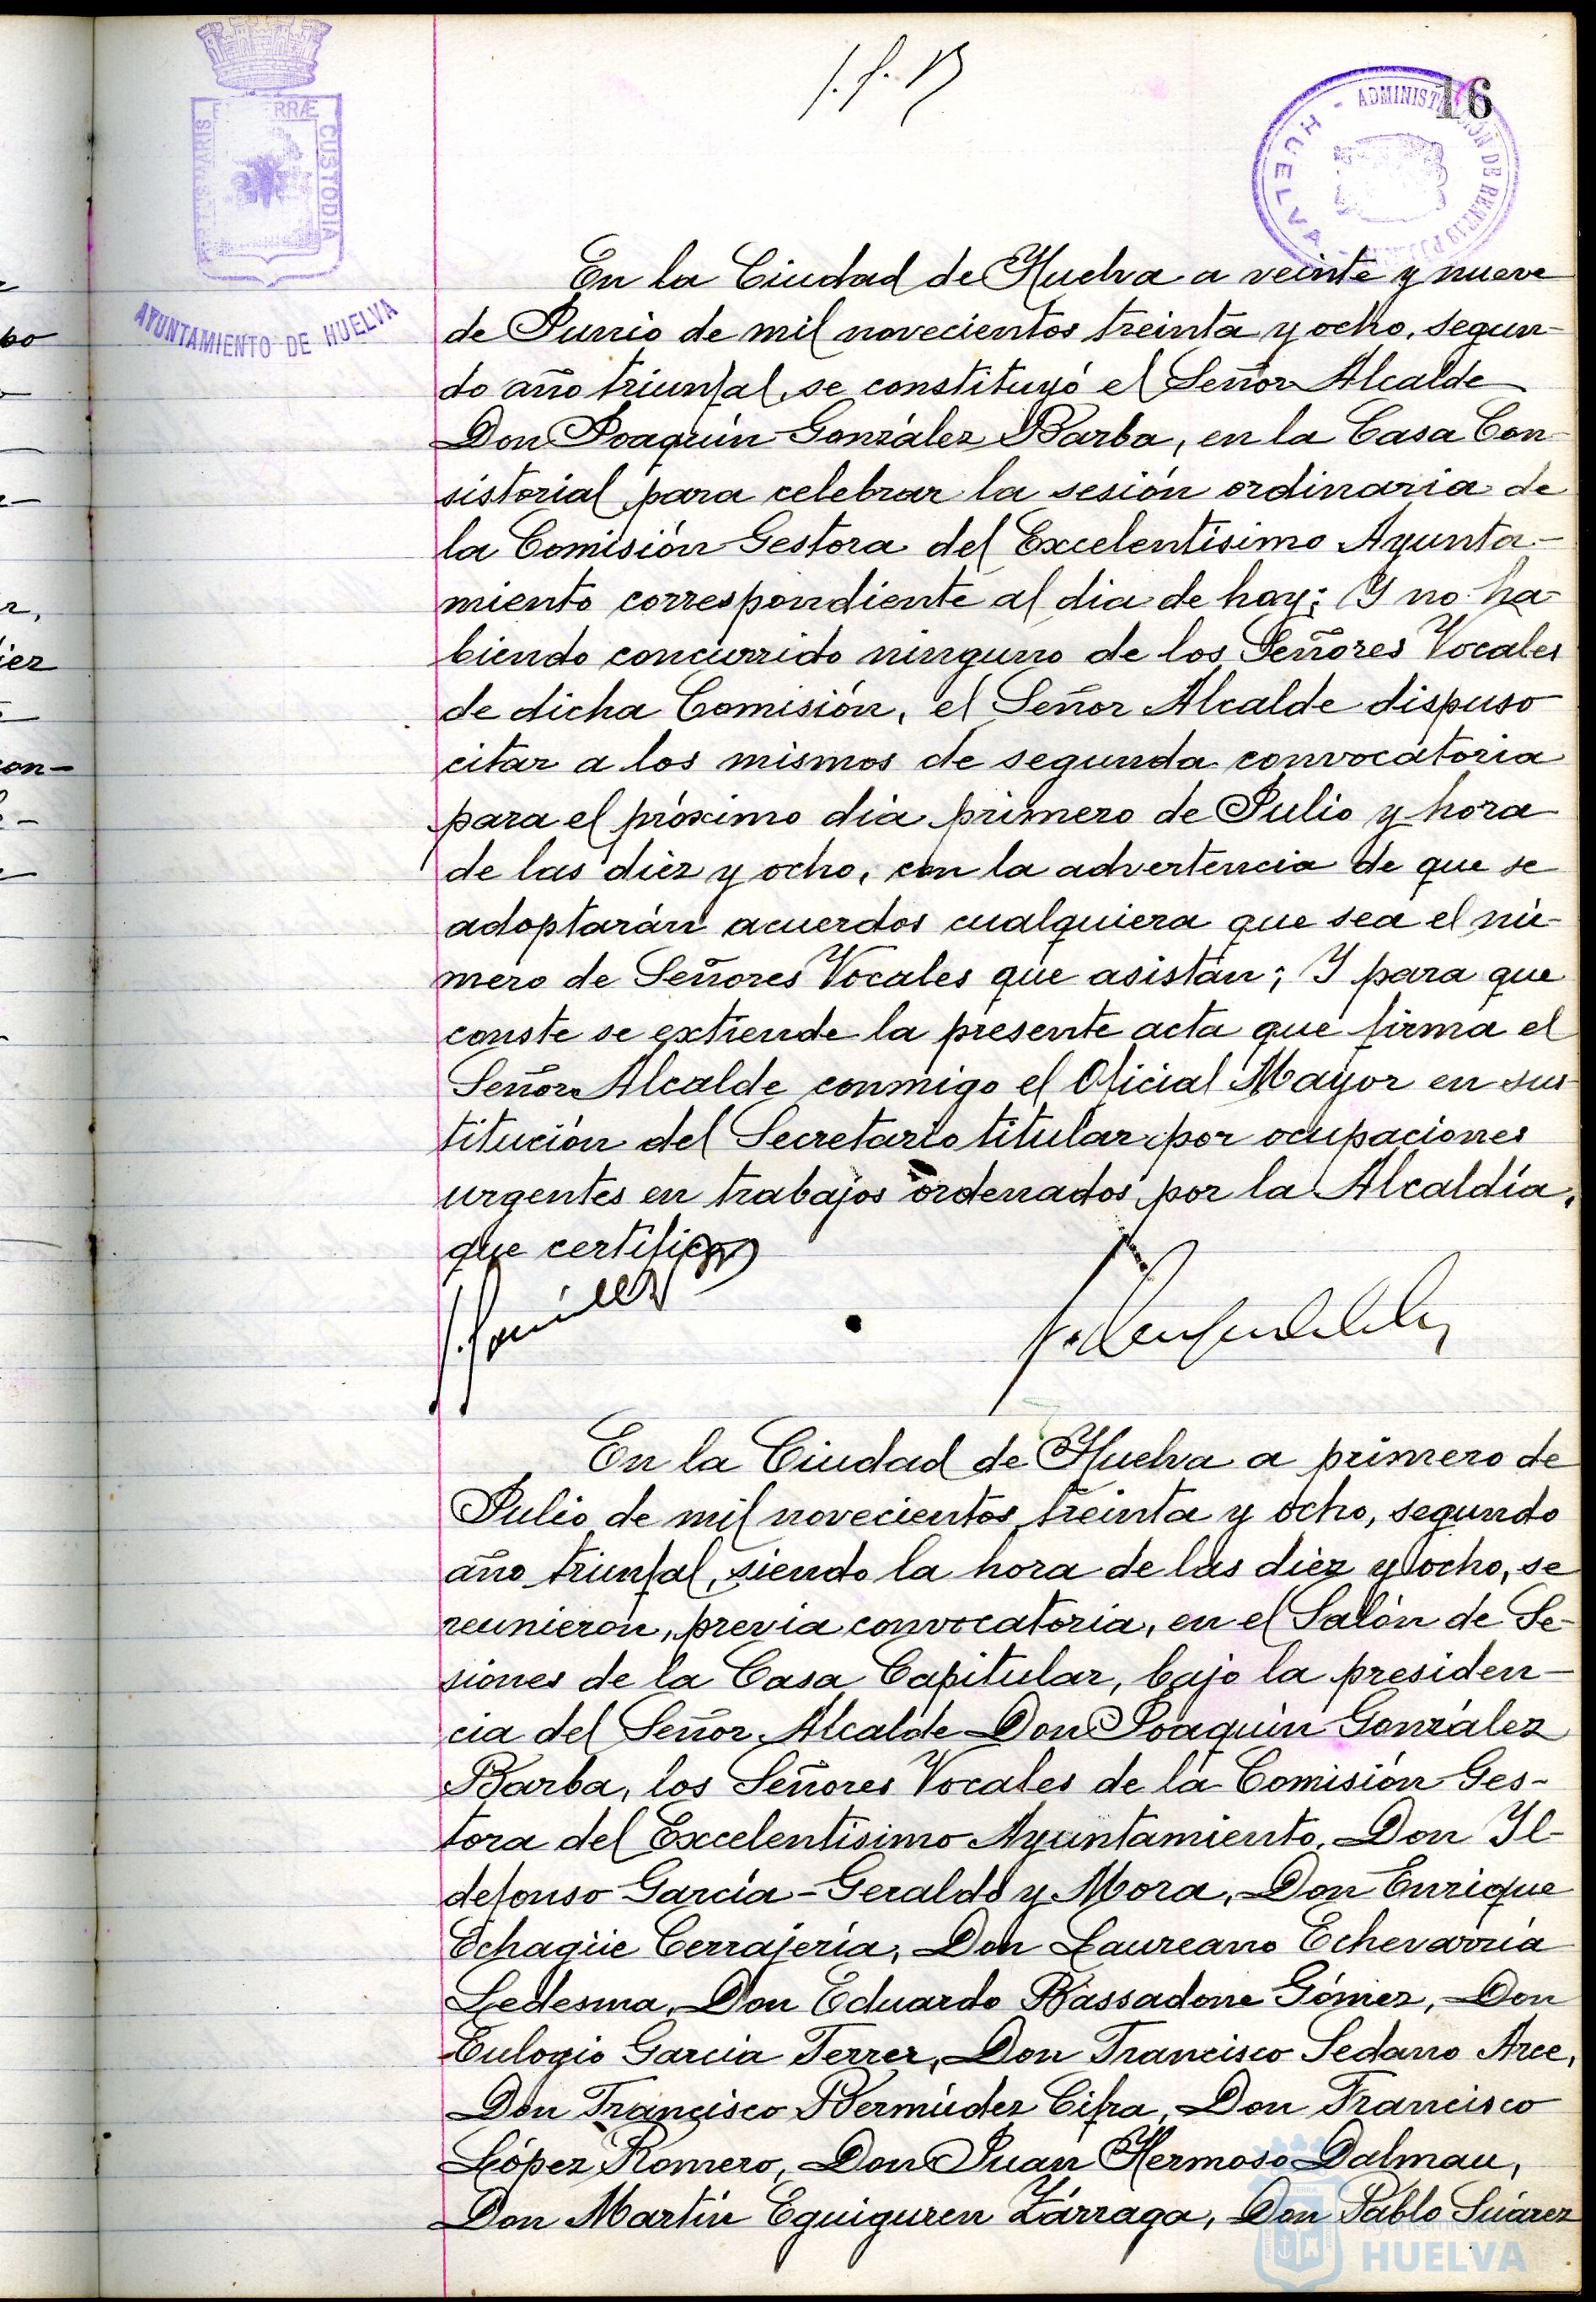 16
ADMINISTRACIÓN DE RENTAS
HUELVA
TERRÆ
CUSTODIA
MARIS
AYUNTAMIENTO DE HUELVA
En la Ciudad de Huelva a veinte y nueve
de Junio de mil novecientos treinta y ocho, segun-
do año triunfal, se constituyó el Señor Alcalde
Don Joaquín González Barba, en la Casa Con-
sistorial para celebrar la sesión ordinaria de
la Comisión Gestora del Excelentísimo Ayunta-
miento correspondiente al dia de hoy; Y no ha-
biendo concurrido ninguno de los Señores Vocales
de dicha Comisión, el Señor Alcalde dispuso
citar a los mismos de segunda convocatoria
para el próximo día primero de Julio y hora
de las diez y ocho, con la advertencia de que se
adoptarán acuerdos cualquiera que sea el nú-
mero de Señores Vocales que asistan; Y para que
conste se extiende la presente acta que firma el
Señor Alcalde conmigo el Oficial Mayor en sus-
titución del Secretario titular por ocupaciones
urgentes en trabajos ordenados por la Alcaldía,
que certifico
En la Ciudad de Huelva a primero de
Julio de mil novecientos treinta y ocho, segundo
año triunfal, siendo la hora de las diez y ocho, se
reunieron, previa convocatoria, en el Salón de Se-
siones de la Casa Capitular, bajo la presiden-
cia del Señor Alcalde Don Joaquín González
Barba, los Señores Vocales de la Comisión Ges-
tora del Excelentísimo Ayuntamiento, Don Il-
defonso García-Geraldo y Mora, Don Enrique
Echagüe Cerrajería, Don Laureano Echevarría
Ledesma, Don Eduardo Bassadone Gómez, Don
Eulogio García Ferrer, Don Francisco Sedano Arce,
Don Francisco Bermúdez Cifra, Don Francisco
López Romero, Don Juan Hermoso Dalmau,
Don Martín Eguiguren Zárraga, Don Pablo Suárez
Ayuntamiento de
HUELVA